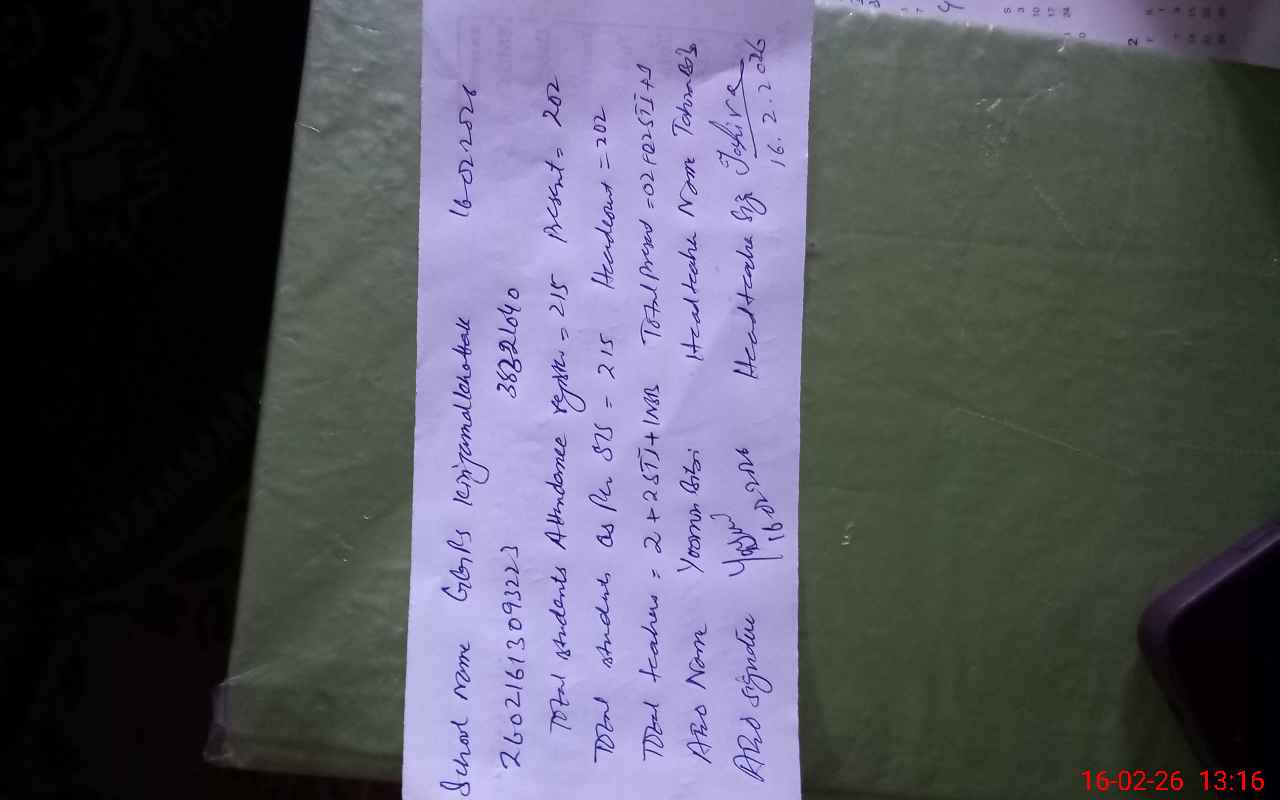 School Name GGPS Kinjamalkhattak 16-02-2026
26021613093223 38321040
Total students Attendance register = 215 Present = 202
Total students as Per SIS = 215 Headcount = 202
Total teachers = 2 + 2STI + 1NSB Total Present = 02+02STI+1
AEO Name Yasmin Bibi Headteacher Name Tahira Bibi
AEO Signature Headteacher Sig Tahira
16-02-2026 16.2.2026
16-02-26 13:16